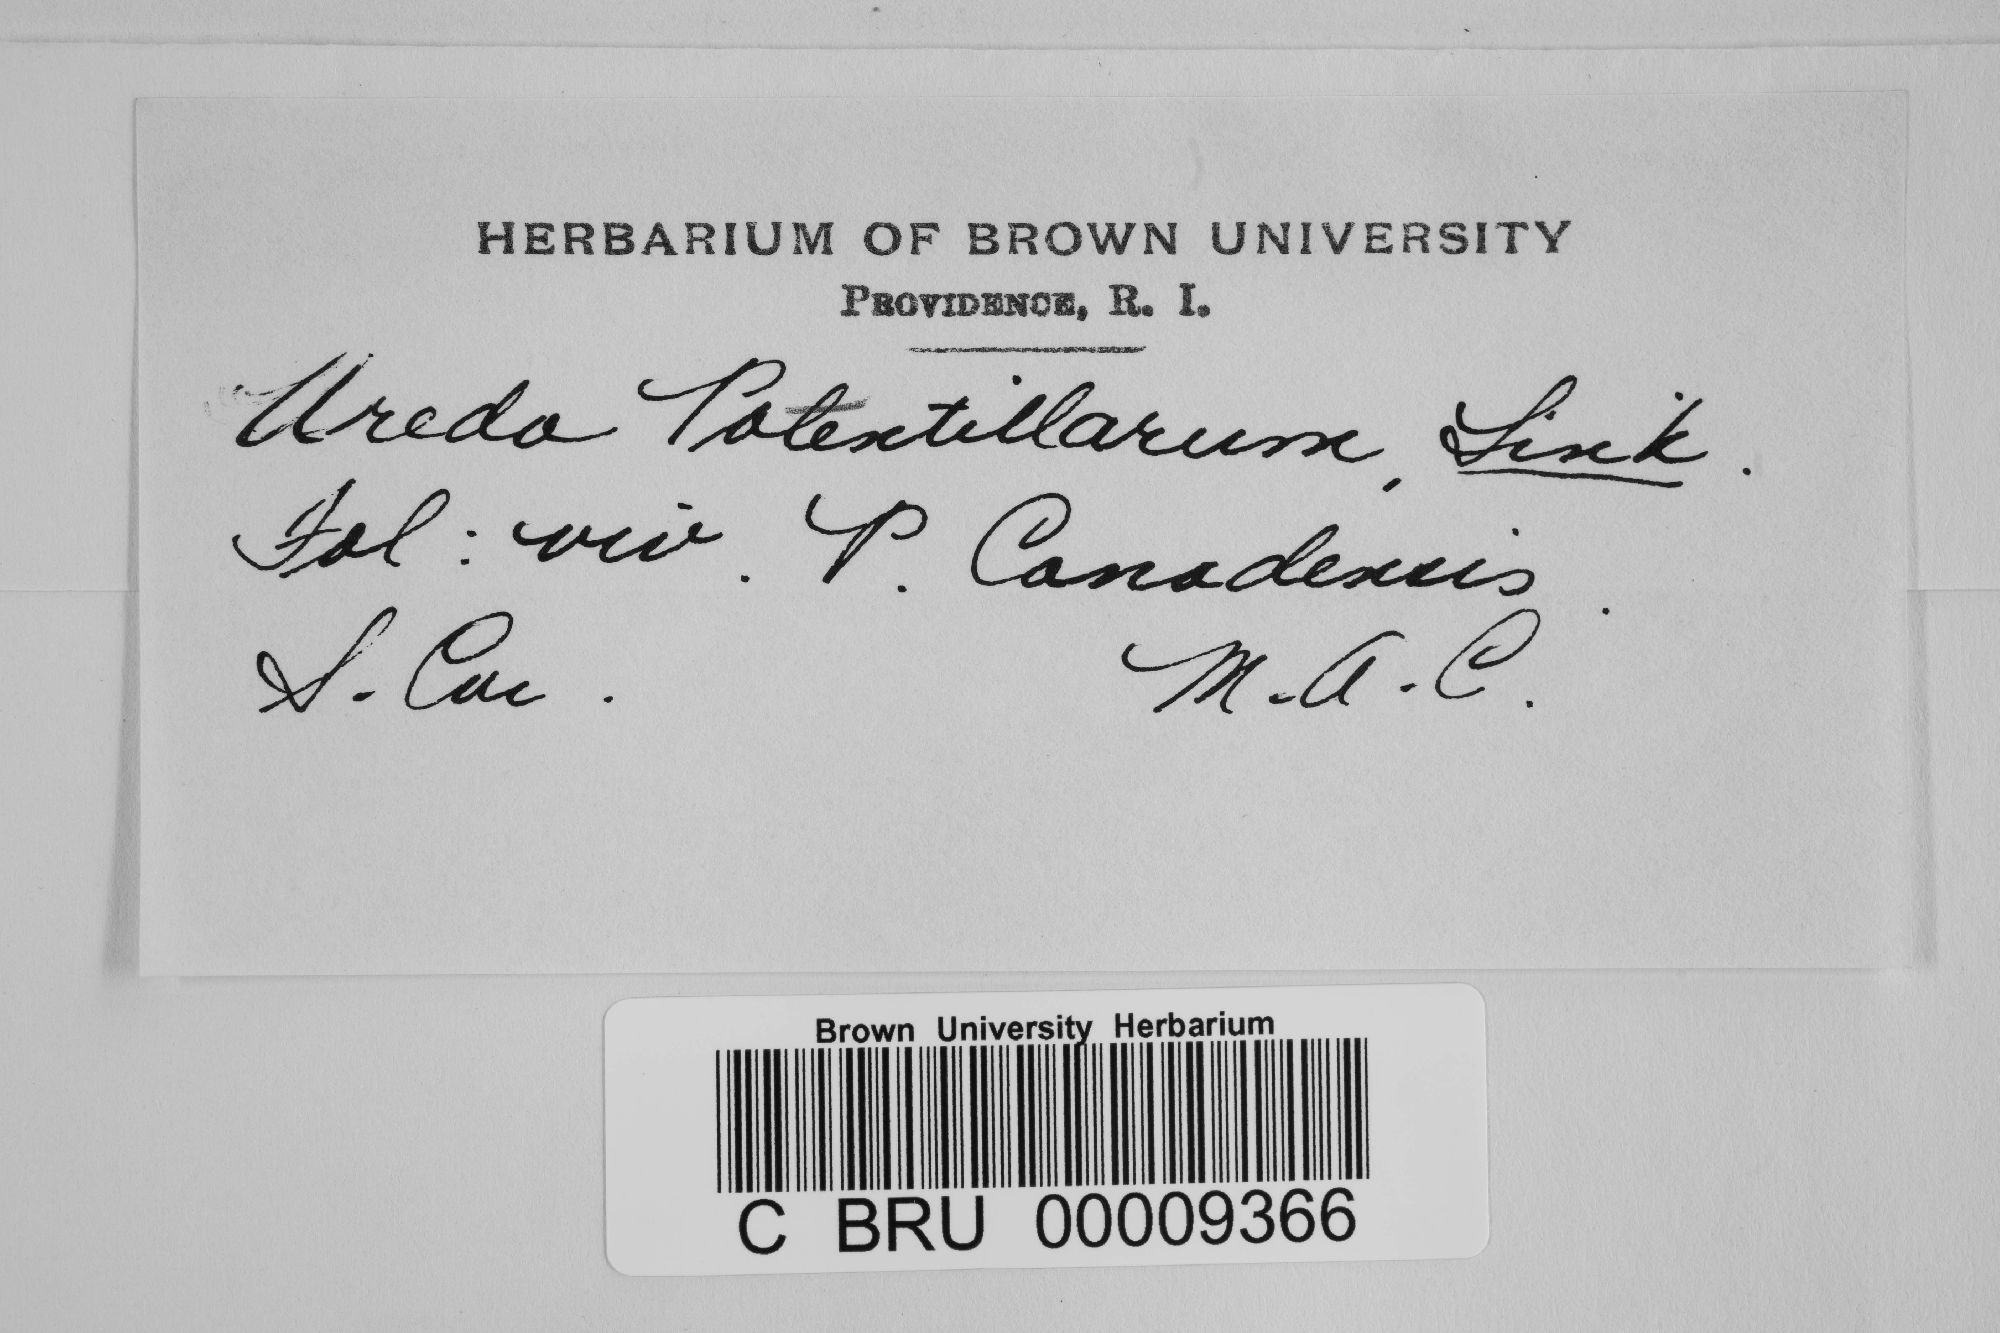 HERBARIUM OF BROWN UNIVERSITY
PROVIDENCE, R. I.
Uredo Potentillarum, Link.
Fol: viv. P. Canadensis.
S. Car. M. A. C.
Brown University Herbarium
C BRU 00009366